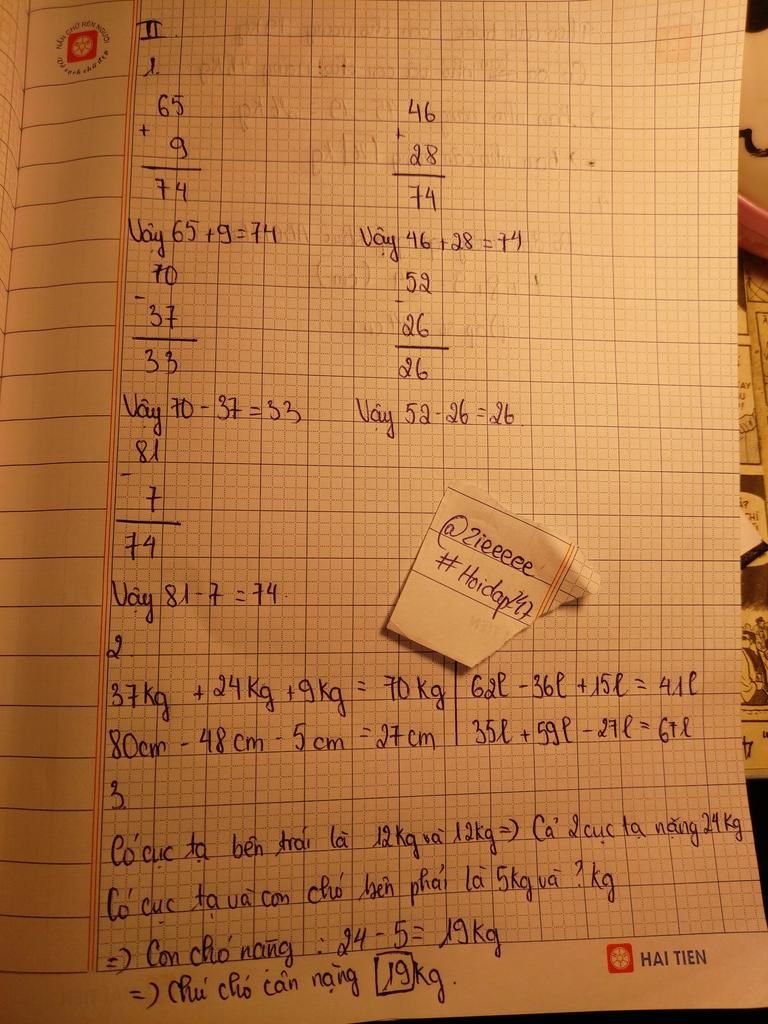 NẮN CHỮ RÈN NGƯỜI
Vở sạch chữ đẹp
II
1.
65
+
9
74
46
+
28
74
Vậy 65 + 9 = 74
Vậy 46 + 28 = 74
70
-
37
33
52
-
26
26
Vậy 70 - 37 = 33
Vậy 52 - 26 = 26
81
-
7
74
@2ieeeee
#Hoidap247
Vậy 81 - 7 = 74
2.
37kg + 24kg + 9kg = 70kg
62l - 36l + 15l = 41l
80cm - 48cm - 5cm = 27cm
35l + 59l - 27l = 67l
3.
Có cục tạ bên trái là 12kg và 12kg => Cả 2 cục tạ nặng 24kg
Có cục tạ và con chó bên phải là 5kg và ? kg
=> Con chó nặng : 24 - 5 = 19kg
=> Chú chó cân nặng 19 kg.
HAI TIEN